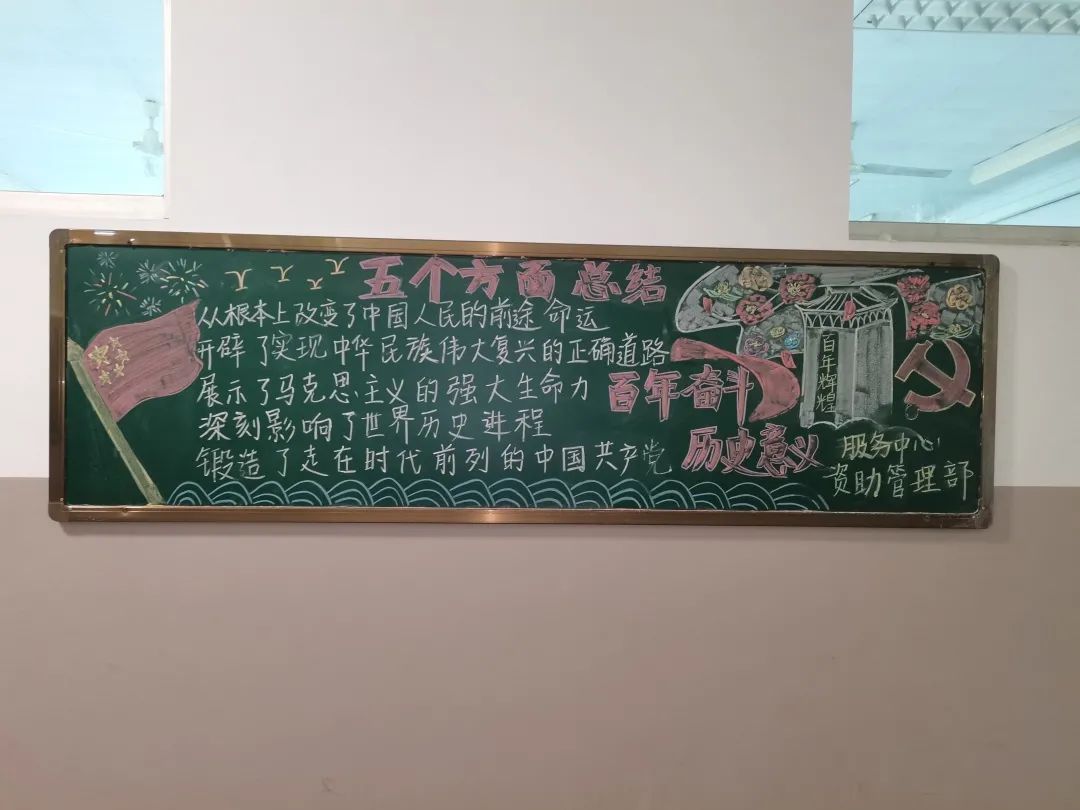 五个方面总结
从根本上改变了中国人民的前途命运
开辟了实现中华民族伟大复兴的正确道路
展示了马克思主义的强大生命力
深刻影响了世界历史进程
锻造了走在时代前列的中国共产党
百年奋斗
历史意义
百年辉煌
服务中心
资助管理部